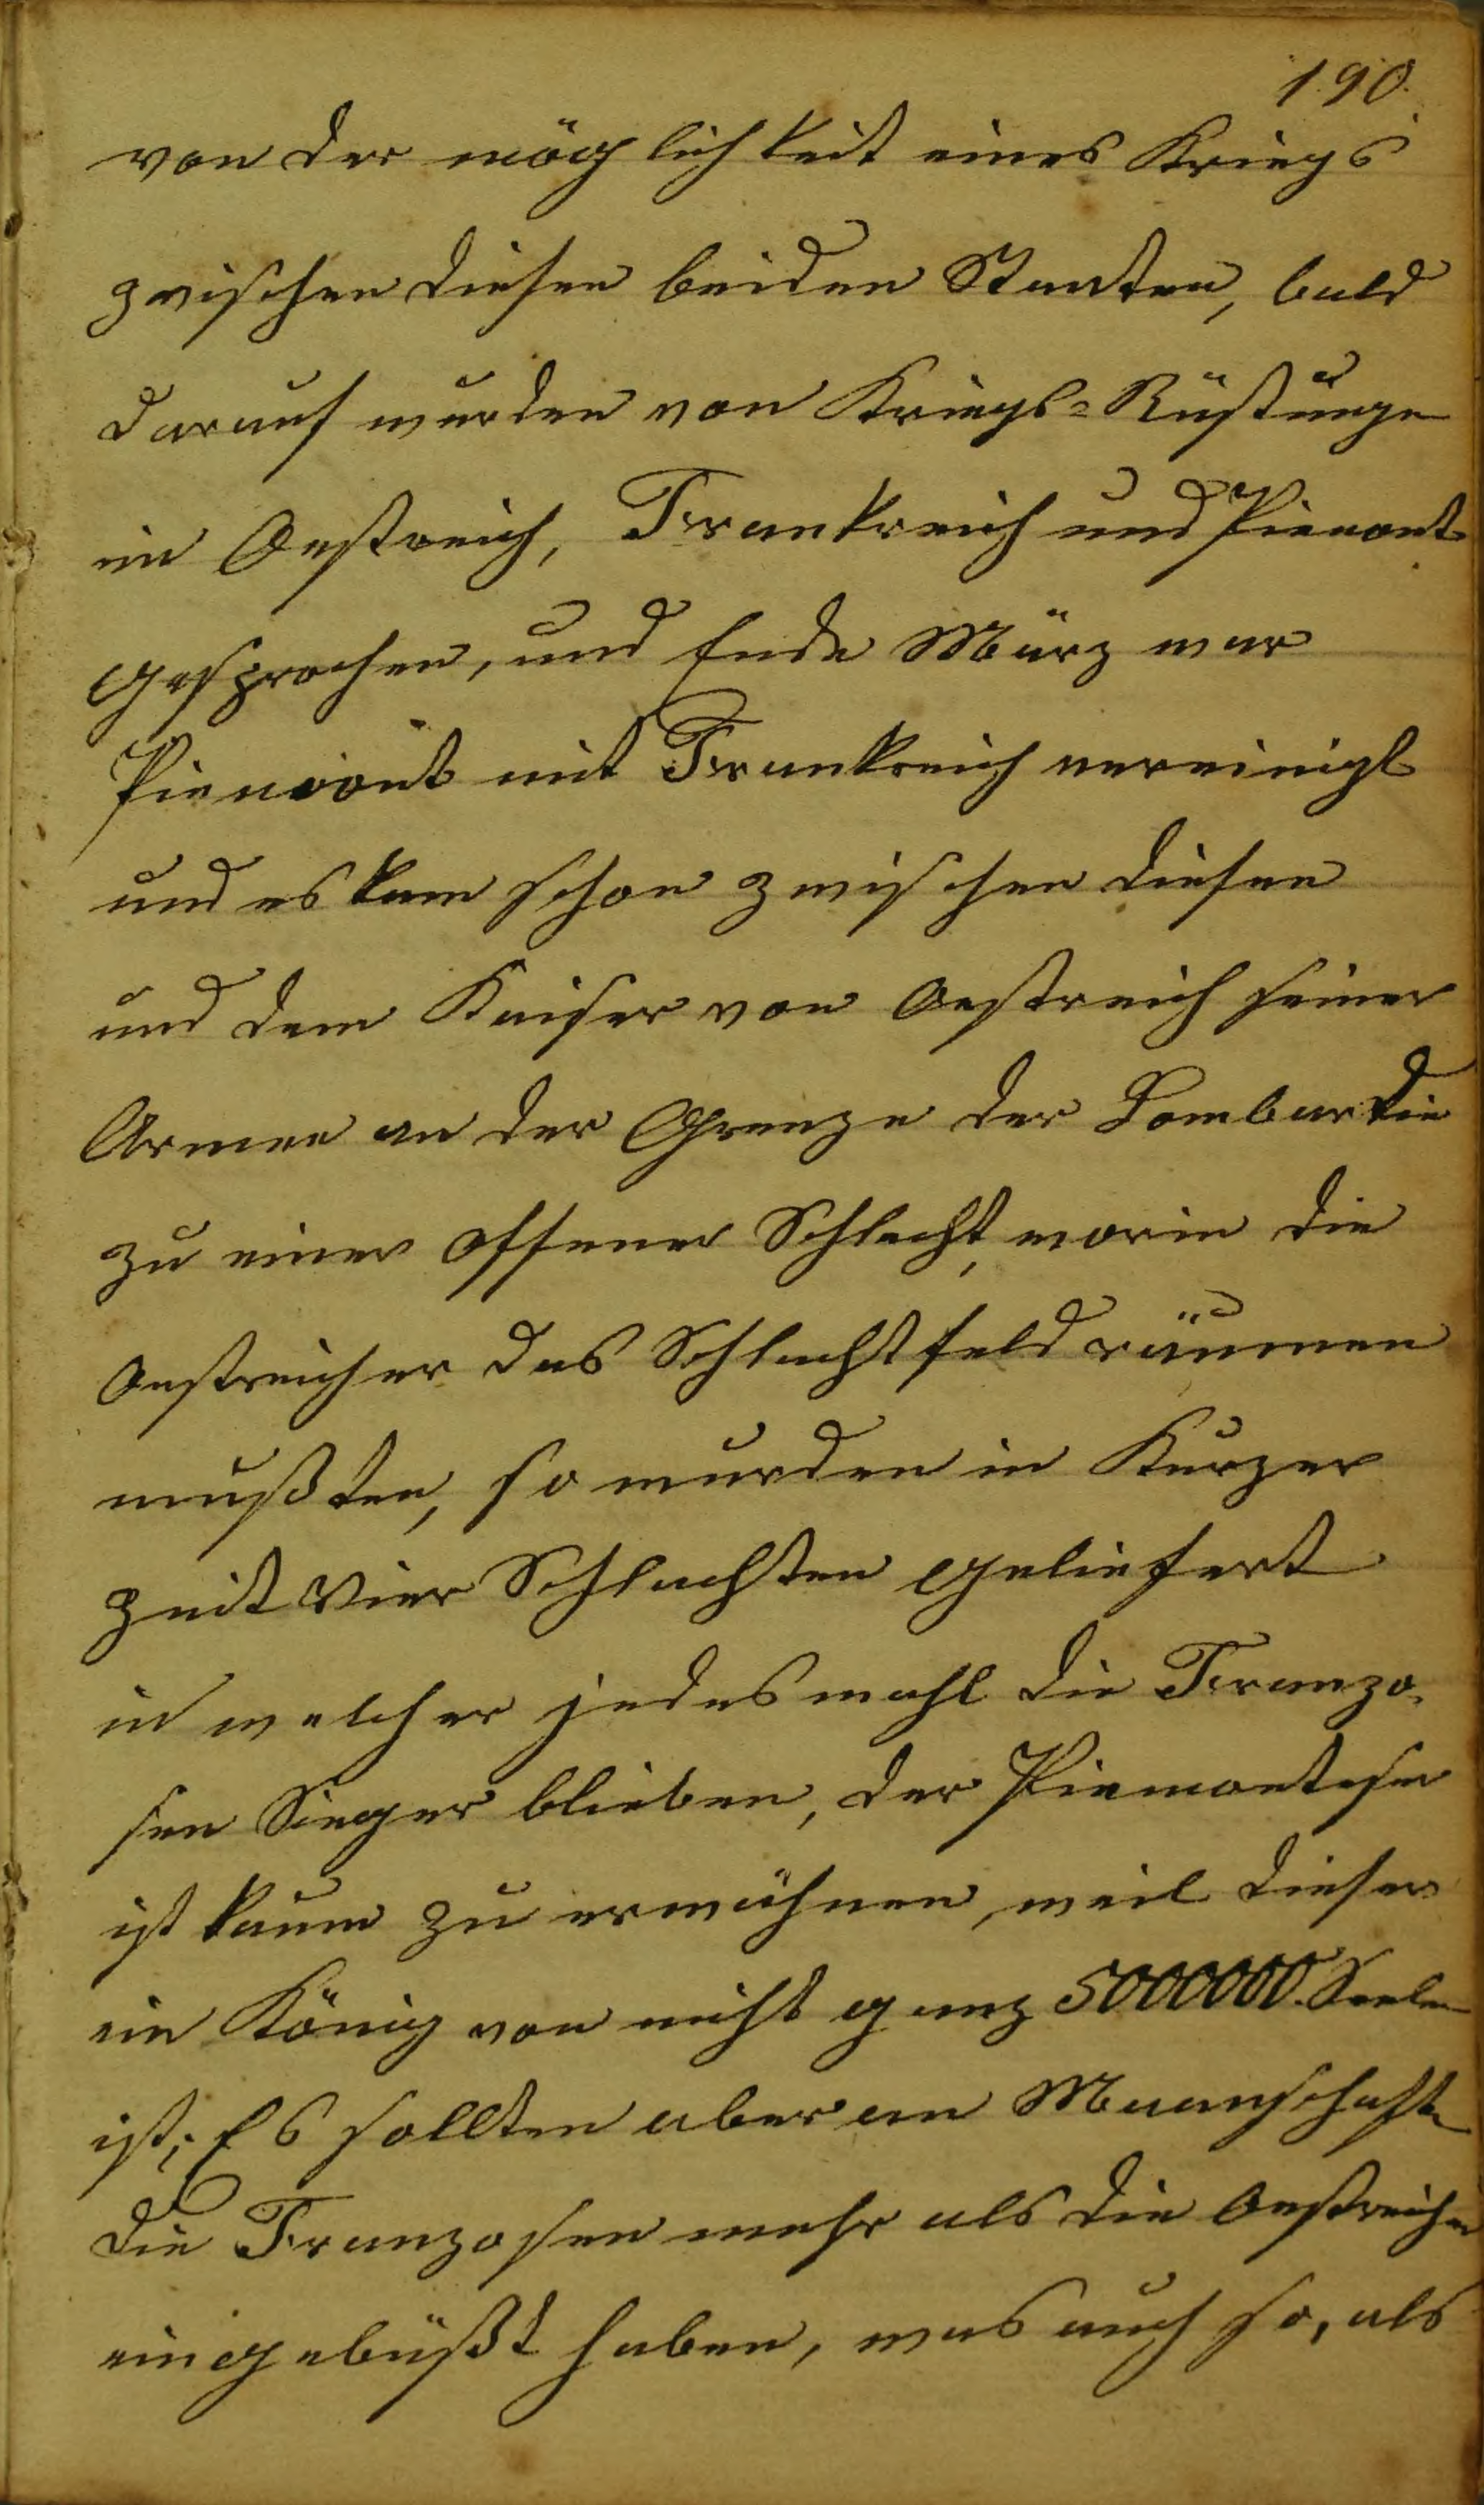 190.
von der möglichkeit eines Kriegs
zwischen diesen beiden Staaten, bald
darauf wurden von Kriegs=Rüstunge
in Oestreich, Frankreich und Piemont
gesprochen, und Ende März war
Piemont mit Frankreich vereinigt
und es kam schon zwischen diesen
und dem Kaiser von Oestreich seiner
Armee an der Grenze der Lombardie
zu einer offener Schlacht, worin die
Oestreicher das Schlachtfeld räumen
mußten, so wurden in Kurzer
zeit Vier Schlachten geliefert
in welcher jedesmahl die Franzo,
sen Sieger blieben, der Piemonteser
ist kaum zu erwähnen, weil dieser
ein König von nicht ganz 5000000. Seelen
ist; Es sollten aber an Maanschafte
die Franzosen mehr als die Oestreicher
eingebüßt haben, was auch so, als